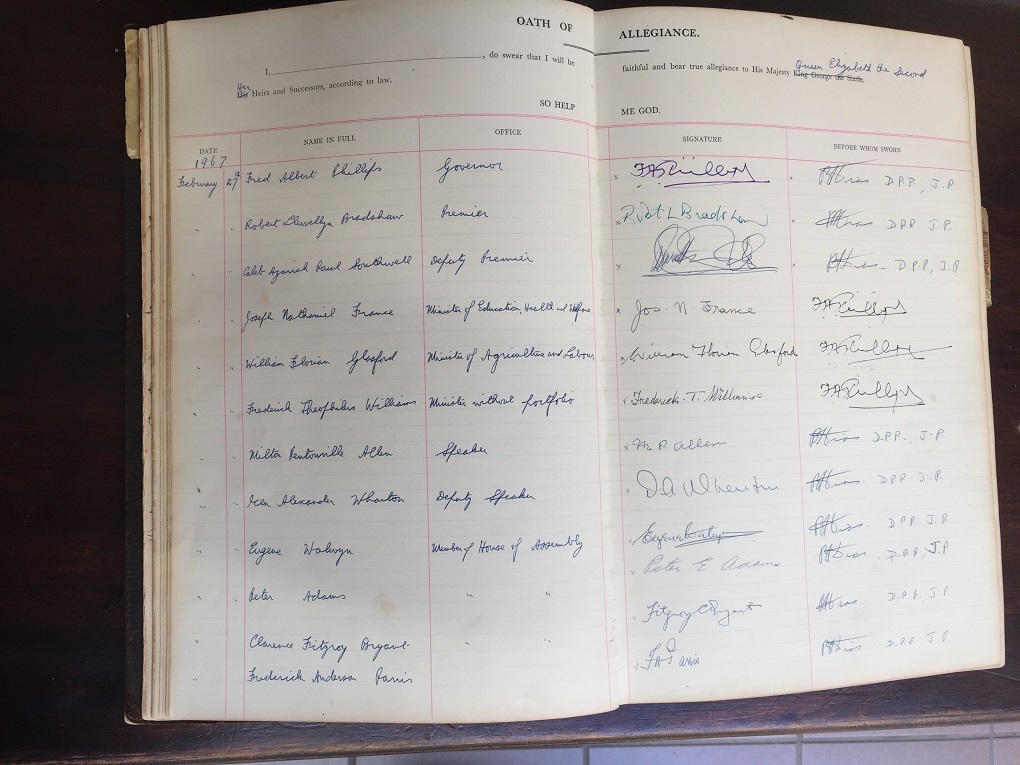 OATH OF ALLEGIANCE.
I, , do swear that I will be faithful and bear true allegiance to His Majesty King George the Sixth, Queen Elizabeth the Second
His Her Heirs and Successors, according to law.
SO HELP ME GOD.
DATE NAME IN FULL OFFICE SIGNATURE BEFORE WHOM SWORN
1967
February 27th Fred Albert Phillips Governor x FAPhillips x D.P.P., J.P
" " Robert Llewellyn Bradshaw Premier x Robt L Bradshaw x D.P.P J.P.
" " Caleb Azariah Paul Southwell Deputy Premier x x D.P.P, J.P
" " Joseph Nathaniel France Minister of Education, Health and Welfare x Jos. N. France FAPhillips
" " William Florian Glasford Minister of Agriculture and Labour x William Florian Glasford FAPhillips
" " Frederick Theophilus Williams Minister without portfolio x Frederick. T. Williams FAPhillips
" " Milton Pentonville Allen Speaker x M P Allen D.P.P., J.P.
" " Alexander Wharton Deputy Speaker x D.P.P. J.P.
" " Eugene Walwyn Member of House of Assembly x D.P.P. J.P.
" " Peter Adams " " x Peter E Adams D.P.P, J.P
" Clarence Fitzroy Bryant " " Fitzroy C Bryant D.P.P., J.P.
" Frederick Anderson Parris x F A Parris D.P.P. J.P.